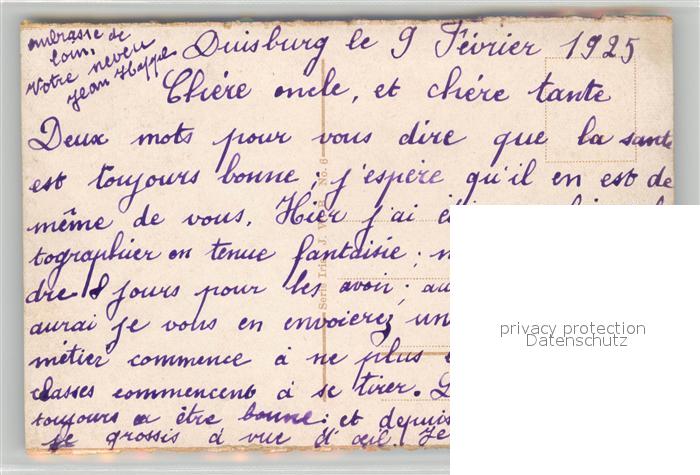 Duisburg le 9 Février 1925
Chére oncle, et chére tante
Deux mots pour vous dire que la sante
est toujours bonne ; j'espère qu'il en est de
même de vous. Hier j'ai
tographier en tenue fantaisie ;
dre 8 jours pour les avoir ; au
aurai je vous en envoierez un
métier commence à ne plus
classes commencent à se tirer.
toujours a être bonne ; et depuis
je grossis à vue d'œil. Je
embrasse de
loin.
Votre neveu
Jean Heppe
Serie Iris J. V. No. 6
privacy protection
Datenschutz